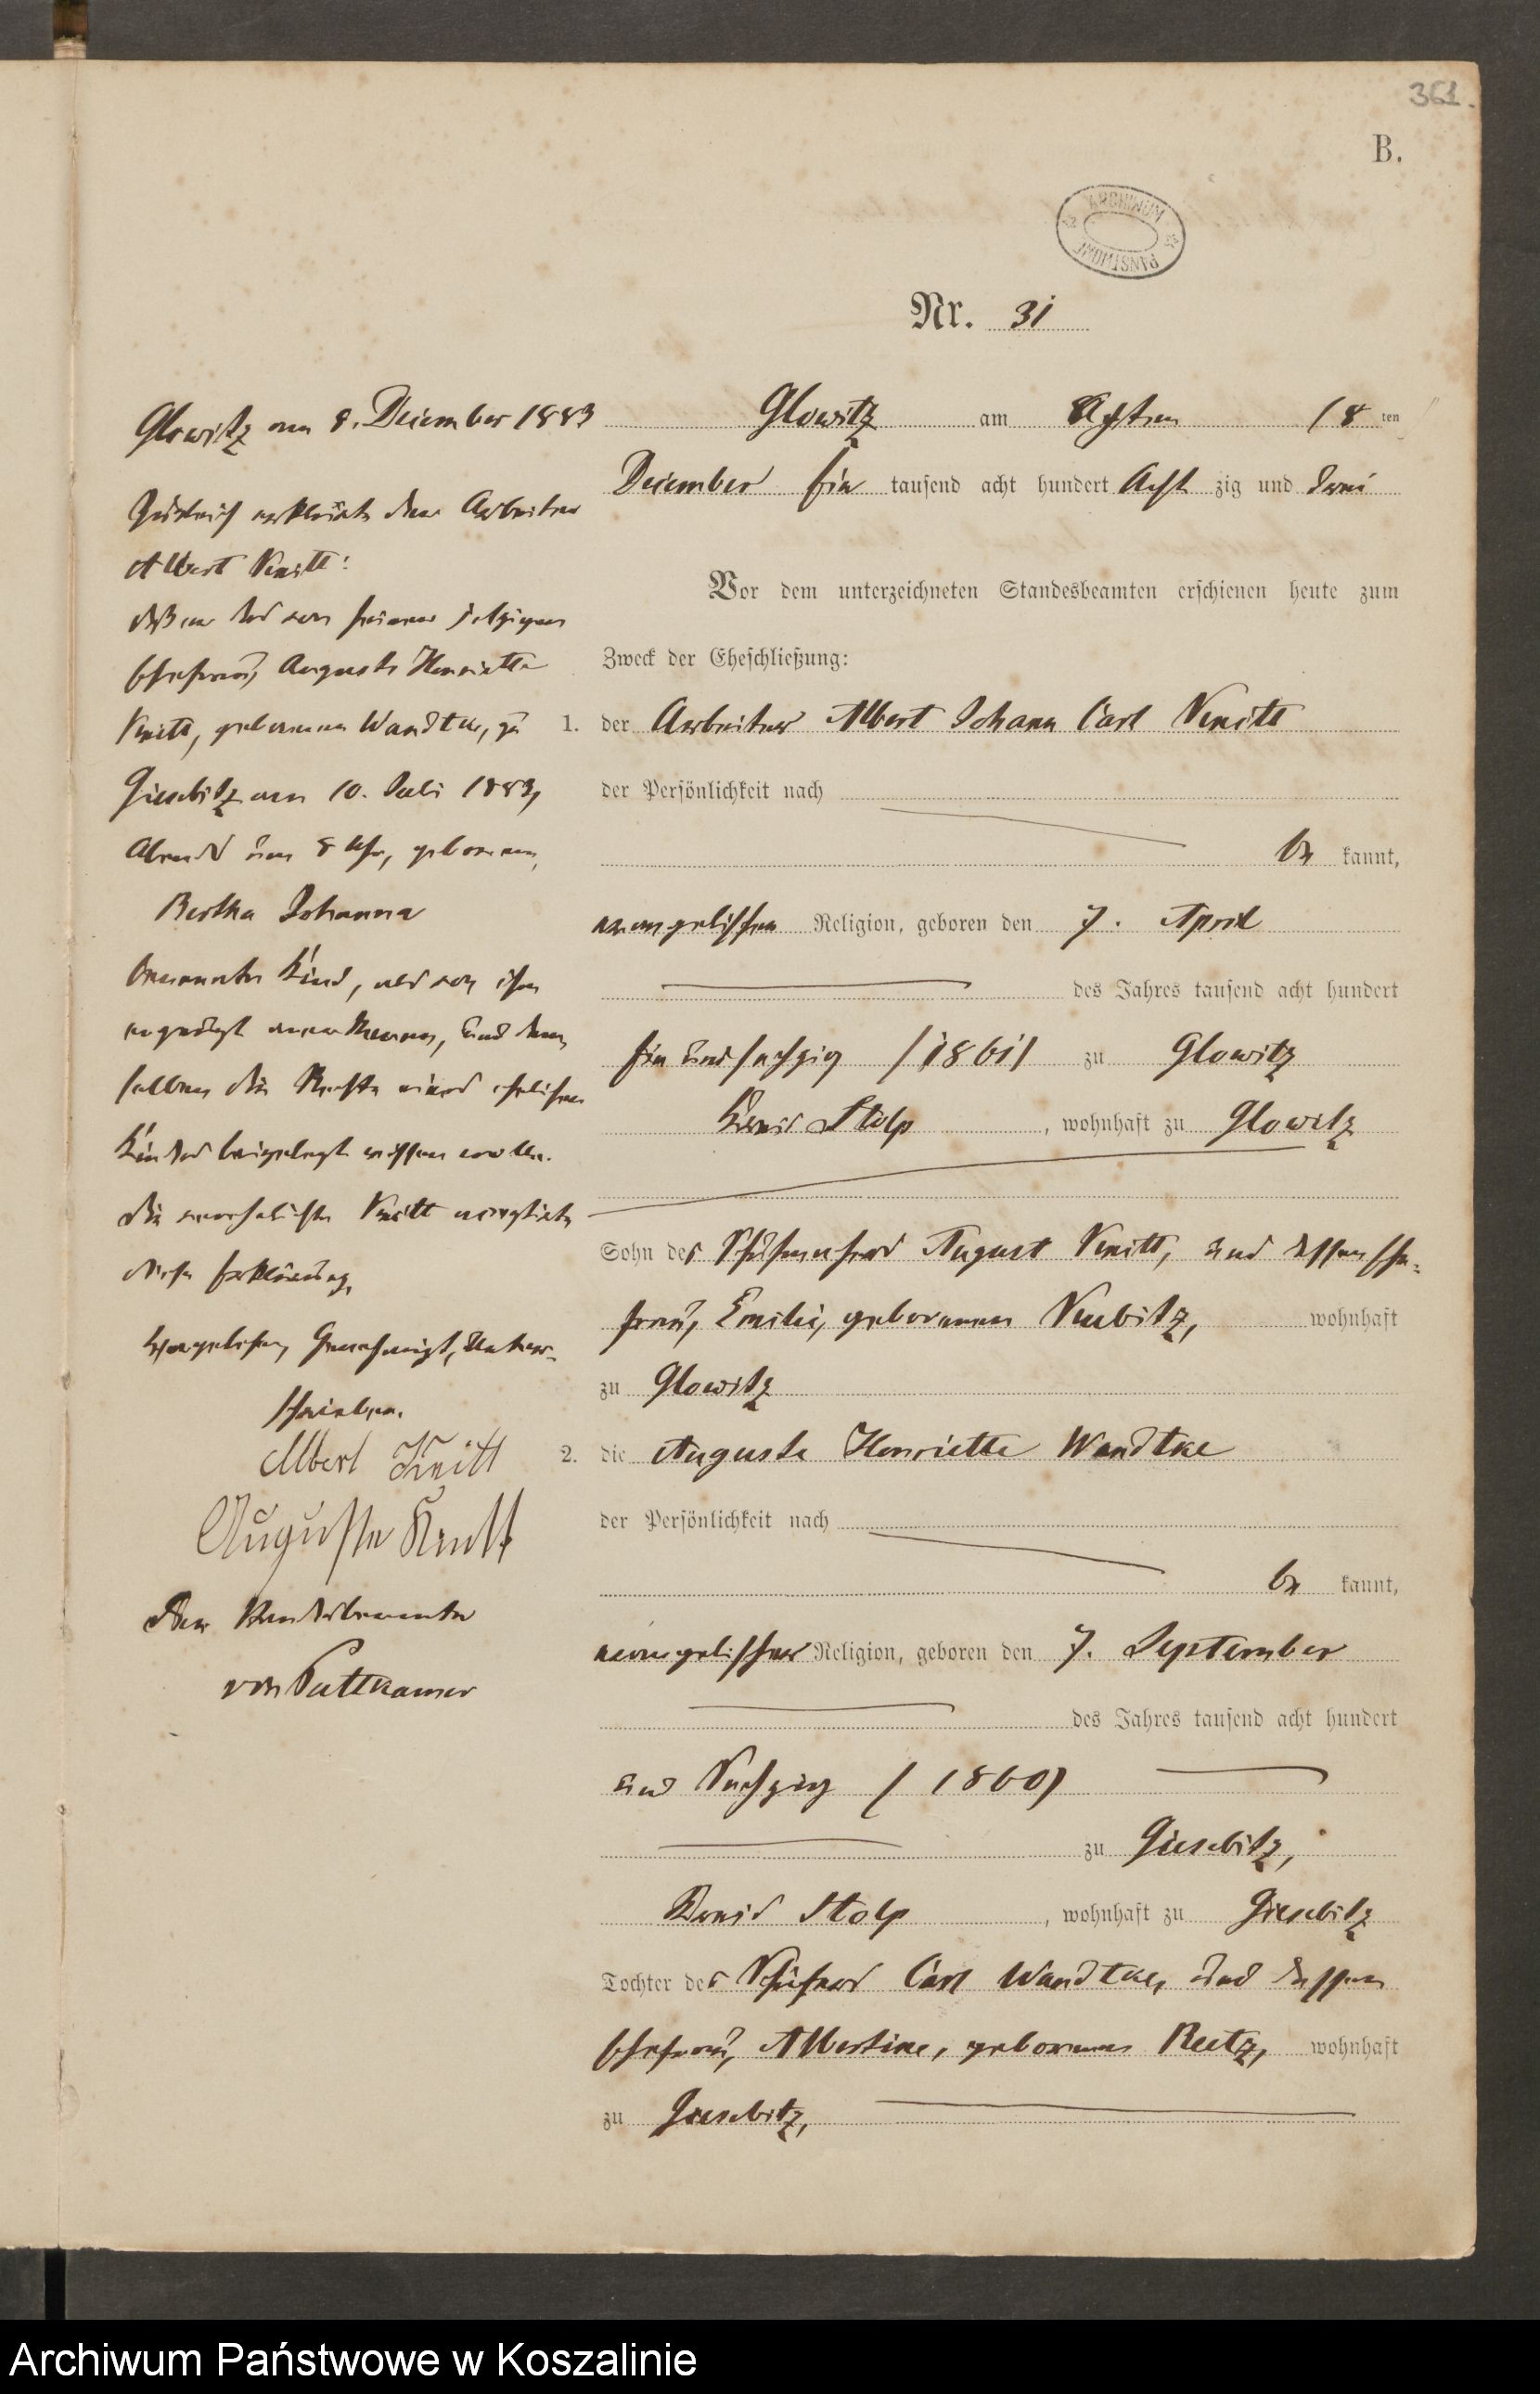 361.
B.
ARCHIWUM PAŃSTWOWE
Nr. 31
Glowitz am 8. December 1883
Zugleich erklärte der Arbeiter
Albert Knitt:
daß er das von seiner jetzigen
Ehefrau, Auguste Henriette
Knitt, geborenen Wandtke, zu
Giesebitz am 10. Juli 1883,
Abends um 8 Uhr, geborene,
Bertha Johanna
benannte Kind, als von ihm
erzeugt anerkenne, und dem
selben die Rechte eines ehelichen
Kindes beigelegt wissen wolle.
Die verehelichte Knitt
diese Erklärung,
Vorgelesen, Genehmigt, Unter-
schrieben.
Albert Knitt
Auguste Knitt
Der Standesbeamte
von Puttkamer
Glowitz am Achten / 8 ten
December Ein tausend acht hundert Acht zig und drei
Vor dem unterzeichneten Standesbeamten erschienen heute zum
Zweck der Eheschließung:
1. der Arbeiter Albert Johann Carl Knitt
der Persönlichkeit nach
be kannt,
evangelischen Religion, geboren den 7. April
des Jahres tausend acht hundert
Ein und sechzig /1861/ zu Glowitz
Kreis Stolp, wohnhaft zu Glowitz
Sohn des August Knitt, und dessen Ehe-
frau, Emilie, geborenen Kubitz, wohnhaft
zu Glowitz
2. die Auguste Henriette Wandtke
der Persönlichkeit nach
be kannt,
evangelischer Religion, geboren den 7. September
des Jahres tausend acht hundert
und Sechzig / 1860)
zu Giesebitz,
Kreis Stolp, wohnhaft zu Giesebitz
Tochter des Schäfers Carl Wandtke, und dessen
Ehefrau, Albertine, geborenen Reetz, wohnhaft
zu Giesebitz,
Archiwum Państwowe w Koszalinie